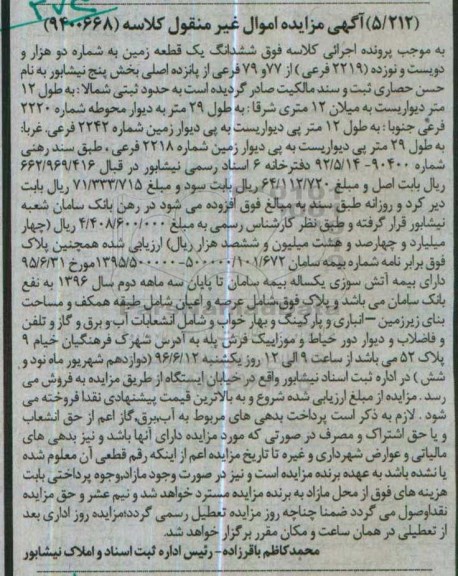 (۵/۲۱۲) آگهی مزایده اموال غیر منقول کلاسه (۹۴۰۰۶۶۸)
به موجب پرونده اجرائی کلاسه فوق ششدانگ یک قطعه زمین به شماره دو هزار و
دویست و نوزده (۲۲۱۹ فرعی) از ۷۷و ۷۹ فرعی از پانزده اصلی بخش پنج نیشابور به نام
حسن حصاری ثبت و سند مالکیت صادر گردیده است به حدود ثبتی شمالا: به طول ۱۲
متر دیواریست به میلان ۱۲ متری شرقا: به طول ۲۹ متر به دیوار محوطه شماره ۲۲۲۰
فرعی جنوبا: به طول ۱۲ متر پی دیواریست به پی دیوار زمین شماره ۲۲۴۲ فرعی، غربا:
به طول ۲۹ متر پی دیواریست به پی دیوار زمین شماره ۲۲۱۸ فرعی، طبق سند رهنی
شماره ۹۰۴۰۰- ۹۲/۵/۱۴ دفترخانه ۶ اسناد رسمی نیشابور در قبال ۶۶۲/۹۶۹/۴۱۶
ریال بابت اصل و مبلغ ۶۴/۰۱۲/۷۲۰ ریال بابت سود و مبلغ ۷۱/۳۳۳/۷۱۵ ریال بابت
دیر کرد و روزانه طبق سند به مبالغ فوق افزوده می شود در رهن بانک سامان شعبه
نیشابور قرار گرفته و طبق نظر کارشناس رسمی به مبلغ ۴/۴۰۸/۶۰۰/۰۰۰ ریال (چهار
میلیارد و چهارصد و هشت میلیون و ششصد هزار ریال) ارزیابی شده همچنین پلاک
فوق برابر نامه شماره بیمه سامان ۵۰۰۰۰۰/۱۰۱/۶۷۲-۱۳۹۵/۵۰۰۰۰۰۰مورخ ۹۵/۶/۳۱
دارای بیمه آتش سوزی یکساله بیمه سامان تا پایان سه ماهه دوم سال ۱۳۹۶ به نفع
بانک سامان می باشد و پلاک فوق شامل عرصه و اعیان شامل طبقه همکف و مساحت
بنای زیرزمین –انباری و پارکینگ و بهار خواب و شامل انشعابات آب و برق و گاز و تلفن
و فاضلاب و دیوار دور حیاط و موزاییک فرش پله به آدرس شهرک فرهنگیان خیام ۹
پلاک ۵۲ می باشد از ساعت ۹ الی ۱۲ روز یکشنبه ۹۶/۶/۱۲ (دوازدهم شهریور ماه نود و
شش) در اداره ثبت اسناد نیشابور واقع در خیابان ایستگاه از طریق مزایده به فروش می
رسد. مزایده از مبلغ ارزیابی شده شروع و به بالاترین قیمت پیشنهادی نقدا فروخته می
شود. لازم به ذکر است پرداخت بدهی های مربوط به آب،برق،گاز اعم از حق انشعاب
و یا حق اشتراک و مصرف در صورتی که مورد مزایده دارای آنها باشد و نیز بدهی های
مالیاتی و عوارض شهرداری و غیره تا تاریخ مزایده اعم از اینکه رقم قطعی آن معلوم شده
یا نشده باشد به عهده برنده مزایده است و نیز در صورت وجود مازاد،وجوه پرداختی بابت
هزینه های فوق از محل مازاد به برنده مزایده مسترد خواهد شد و نیم عشر و حق مزایده
نقداوصول می گردد ضمنا چناچه روز مزایده تعطیل رسمی گردد؛مزایده روز اداری بعد
از تعطیلی در همان ساعت و مکان مقرر برگزار خواهد شد.
محمدکاظم باقرزاده- رئیس اداره ثبت اسناد و املاک نیشابور